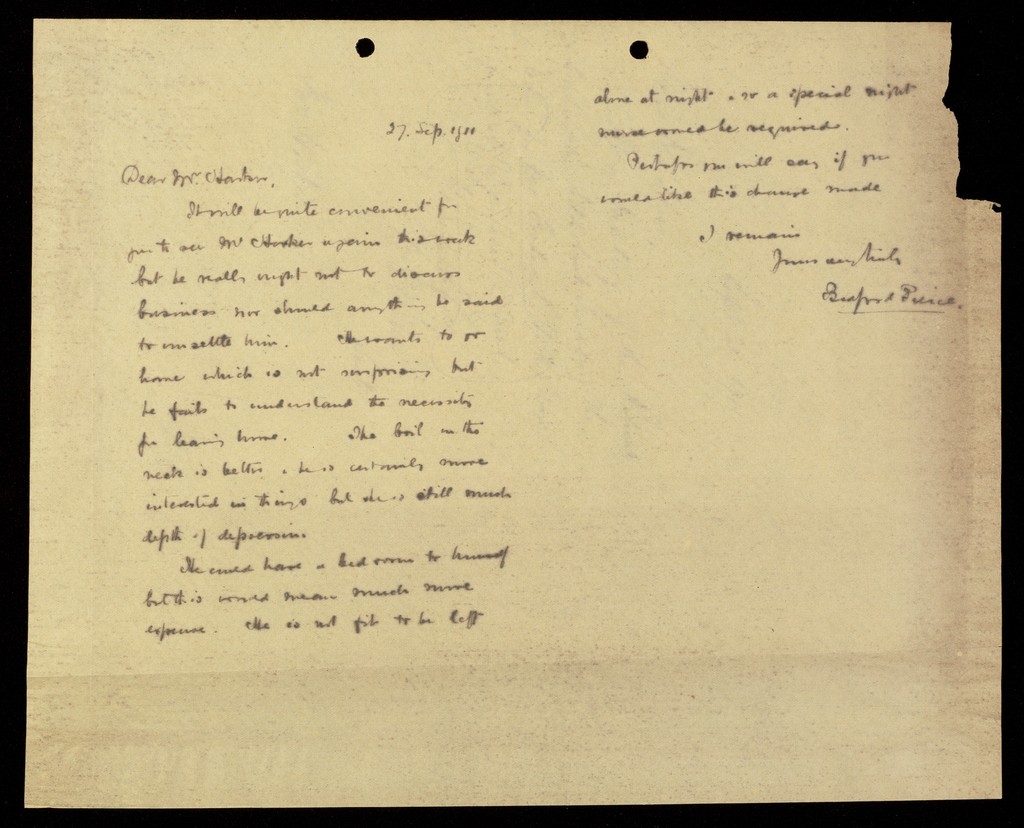 27. Sep. 1911
Dear Mr. Harker,
It will be quite convenient for
you to see Mr Harker again this week
but he really ought not to discuss
business nor should anything be said
to unsettle him. He wants to go
home which is not surprising but
he fails to understand the necessity
for leaving home. The boil on the
neck is better & he is certainly more
interested in things but there is still much
depth of depression.
He could have a bed room to himself
but this would mean much more
expense. He is not fit to be left
alone at night & so a special night
nurse would be required.
Perhaps you will say if you
would like this change made
I remain
Yours very truly
Bedford Pierce.